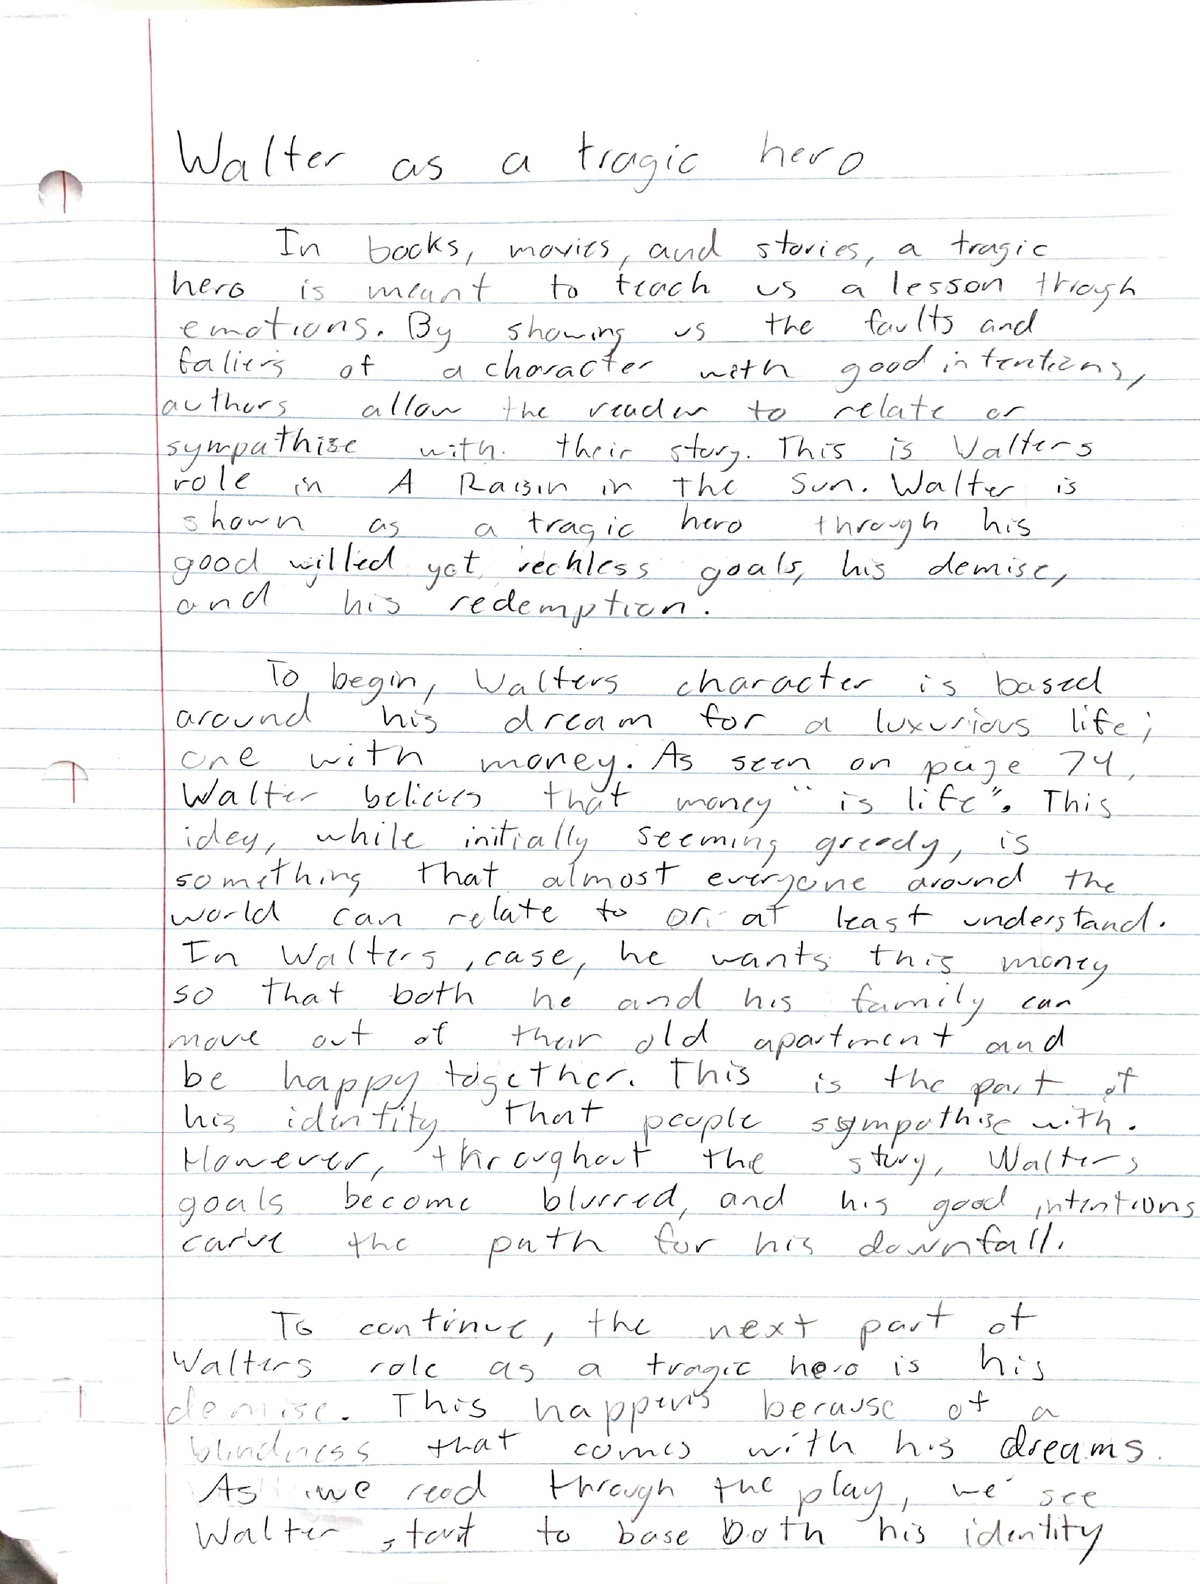 Walter as a tragic hero
In books, movies, and stories, a tragic
hero is meant to teach us a lesson throgh
emotions. By showing us the faults and
faliers of a character with good intentions,
authors allow the reader to relate or
sympathise with their story. This is Walters
role in A Raisin in the Sun. Walter is
shown as a tragic hero through his
good willed yet reckless goals, his demise,
and his redemption.
To begin, Walters character is based
around his dream for a luxurious life;
one with money. As seen on page 74,
Walter believes that money "is life". This
idey, while initially seeming greedy, is
something that almost everyone around the
world can relate to or at least understand.
In Walters case, he wants this money
so that both he and his family can
move out of their old apartment and
be happy together. This is the part of
his identity that people sympathise with.
However, throughout the story, Walters
goals become blurred, and his good intentions
carve the path for his downfall.
To continue, the next part of
Walters role as a tragic hero is his
demise. This happens because of a
blindness that comes with his dreams.
As we read through the play, we see
Walter start to base both his identity